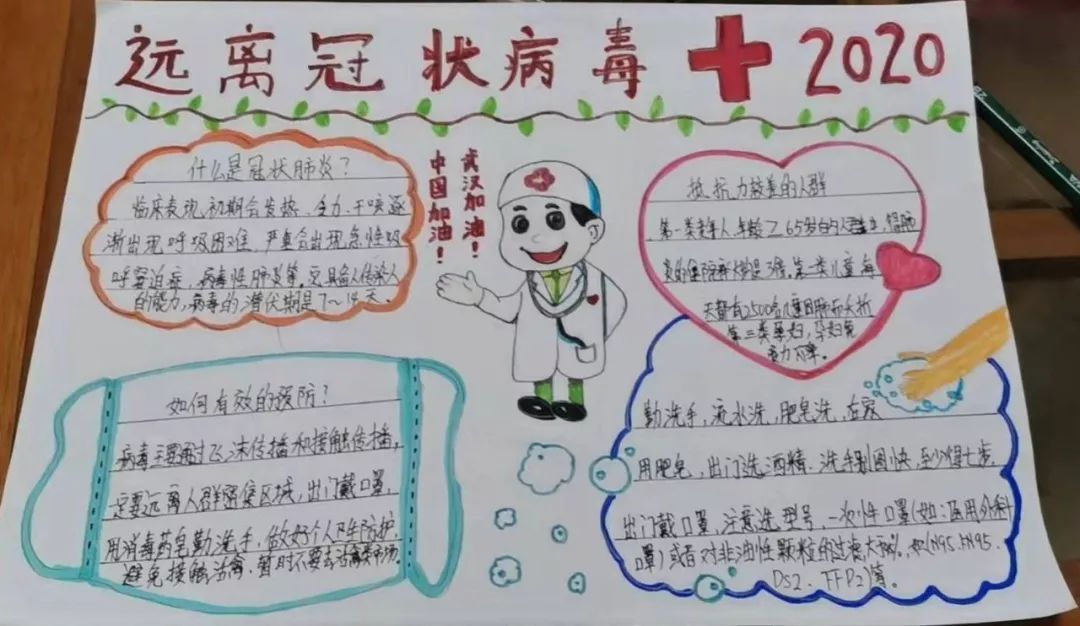 远离冠状病毒 2020
什么是冠状肺炎?
临床表现,初期会发热、乏力、干咳逐
渐出现呼吸困难,严重会出现急性呼
呼窘迫症,病毒性肺炎等。它具备人传染人
的能力,病毒的潜伏期是7~14天。
武汉加油!
中国加油!
抵抗力较差的人群
第一类老年人,年龄≥65岁的人
是3倍。第二类儿童,每
天都有2500名儿童因肺炎夭折
第三类孕妇,孕妇免
疫力下降。
如何有效的预防?
病毒主要通过飞沫传播和接触传播,
一定要远离人群密集区域,出门戴口罩,
用消毒药皂勤洗手,做好个人卫生防护,
避免接触活禽,暂时不要去活禽类市场。
勤洗手,流水洗,肥皂洗,在家
用肥皂,出门选酒精。洗手别图快,至少得七步,
出门戴口罩,注意选型号,一次性口罩(如:医用外科
口罩)或者对非油性颗粒的过滤大于 %,如(N95、KN95、
DS2、FFP2)等。